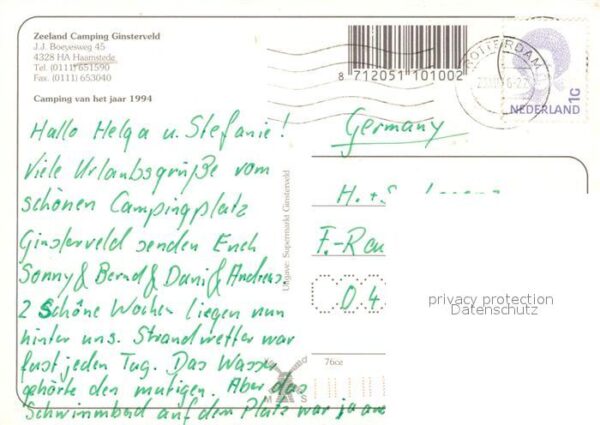 Zeeland Camping Ginsterveld
J.J. Boeyesweg 45
4328 HA Haamstede
Tel. (0111) 651590
Fax. (0111) 653040
Camping van het jaar 1994
Hallo Helga u. Stefanie!
Viele Urlaubsgrüße vom
schönen Campingplatz
Ginsterveld senden Euch
Sonny & Bernd & Dani & Andreas.
2 schöne Wochen liegen nun
hinter uns. Strandwetter war
fast jeden Tag. Das Wasser
gehörte den mutigen. Aber das
Schwimmbad auf dem Platz war ja
Uitgave: Supermarkt Ginsterveld
8 712051 101002
ROTTERDAM
NEDERLAND 1G
Germany
H.
F.-
0.4
privacy protection
Datenschutz
M S